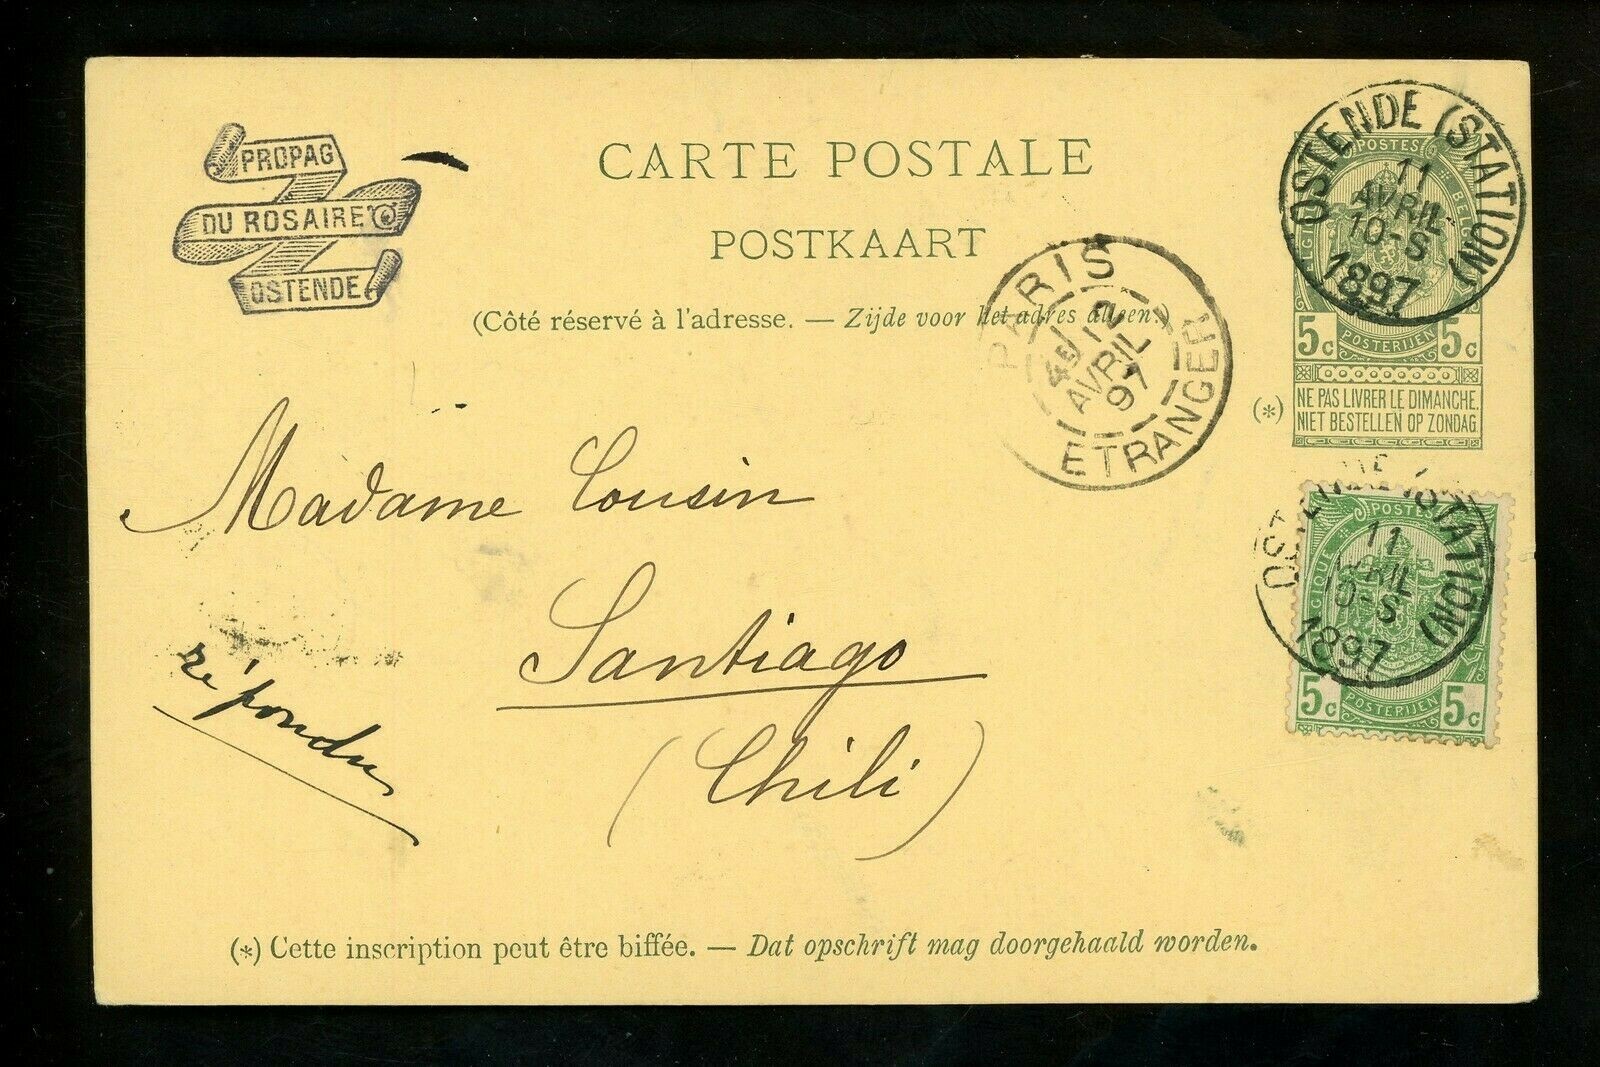 PROPAG
DU ROSAIRE
OSTENDE
CARTE POSTALE
POSTKAART
(Côté réservé à l'adresse. — Zijde voor het adres alleen.)
OSTENDE (STATION)
11
AVRIL
10-S
1897
POSTES
5c 5c
POSTERIJEN
(*) NE PAS LIVRER LE DIMANCHE.
NIET BESTELLEN OP ZONDAG.
PARIS
12
AVRIL
97
ETRANGER
OSTENDE (STATION)
11
AVRIL
10-S
1897
POSTES
5c 5c
POSTERIJEN
Madame Cousin
Santiago
(Chili)
répondu
(*) Cette inscription peut être biffée. — Dat opschrift mag doorgehaald worden.